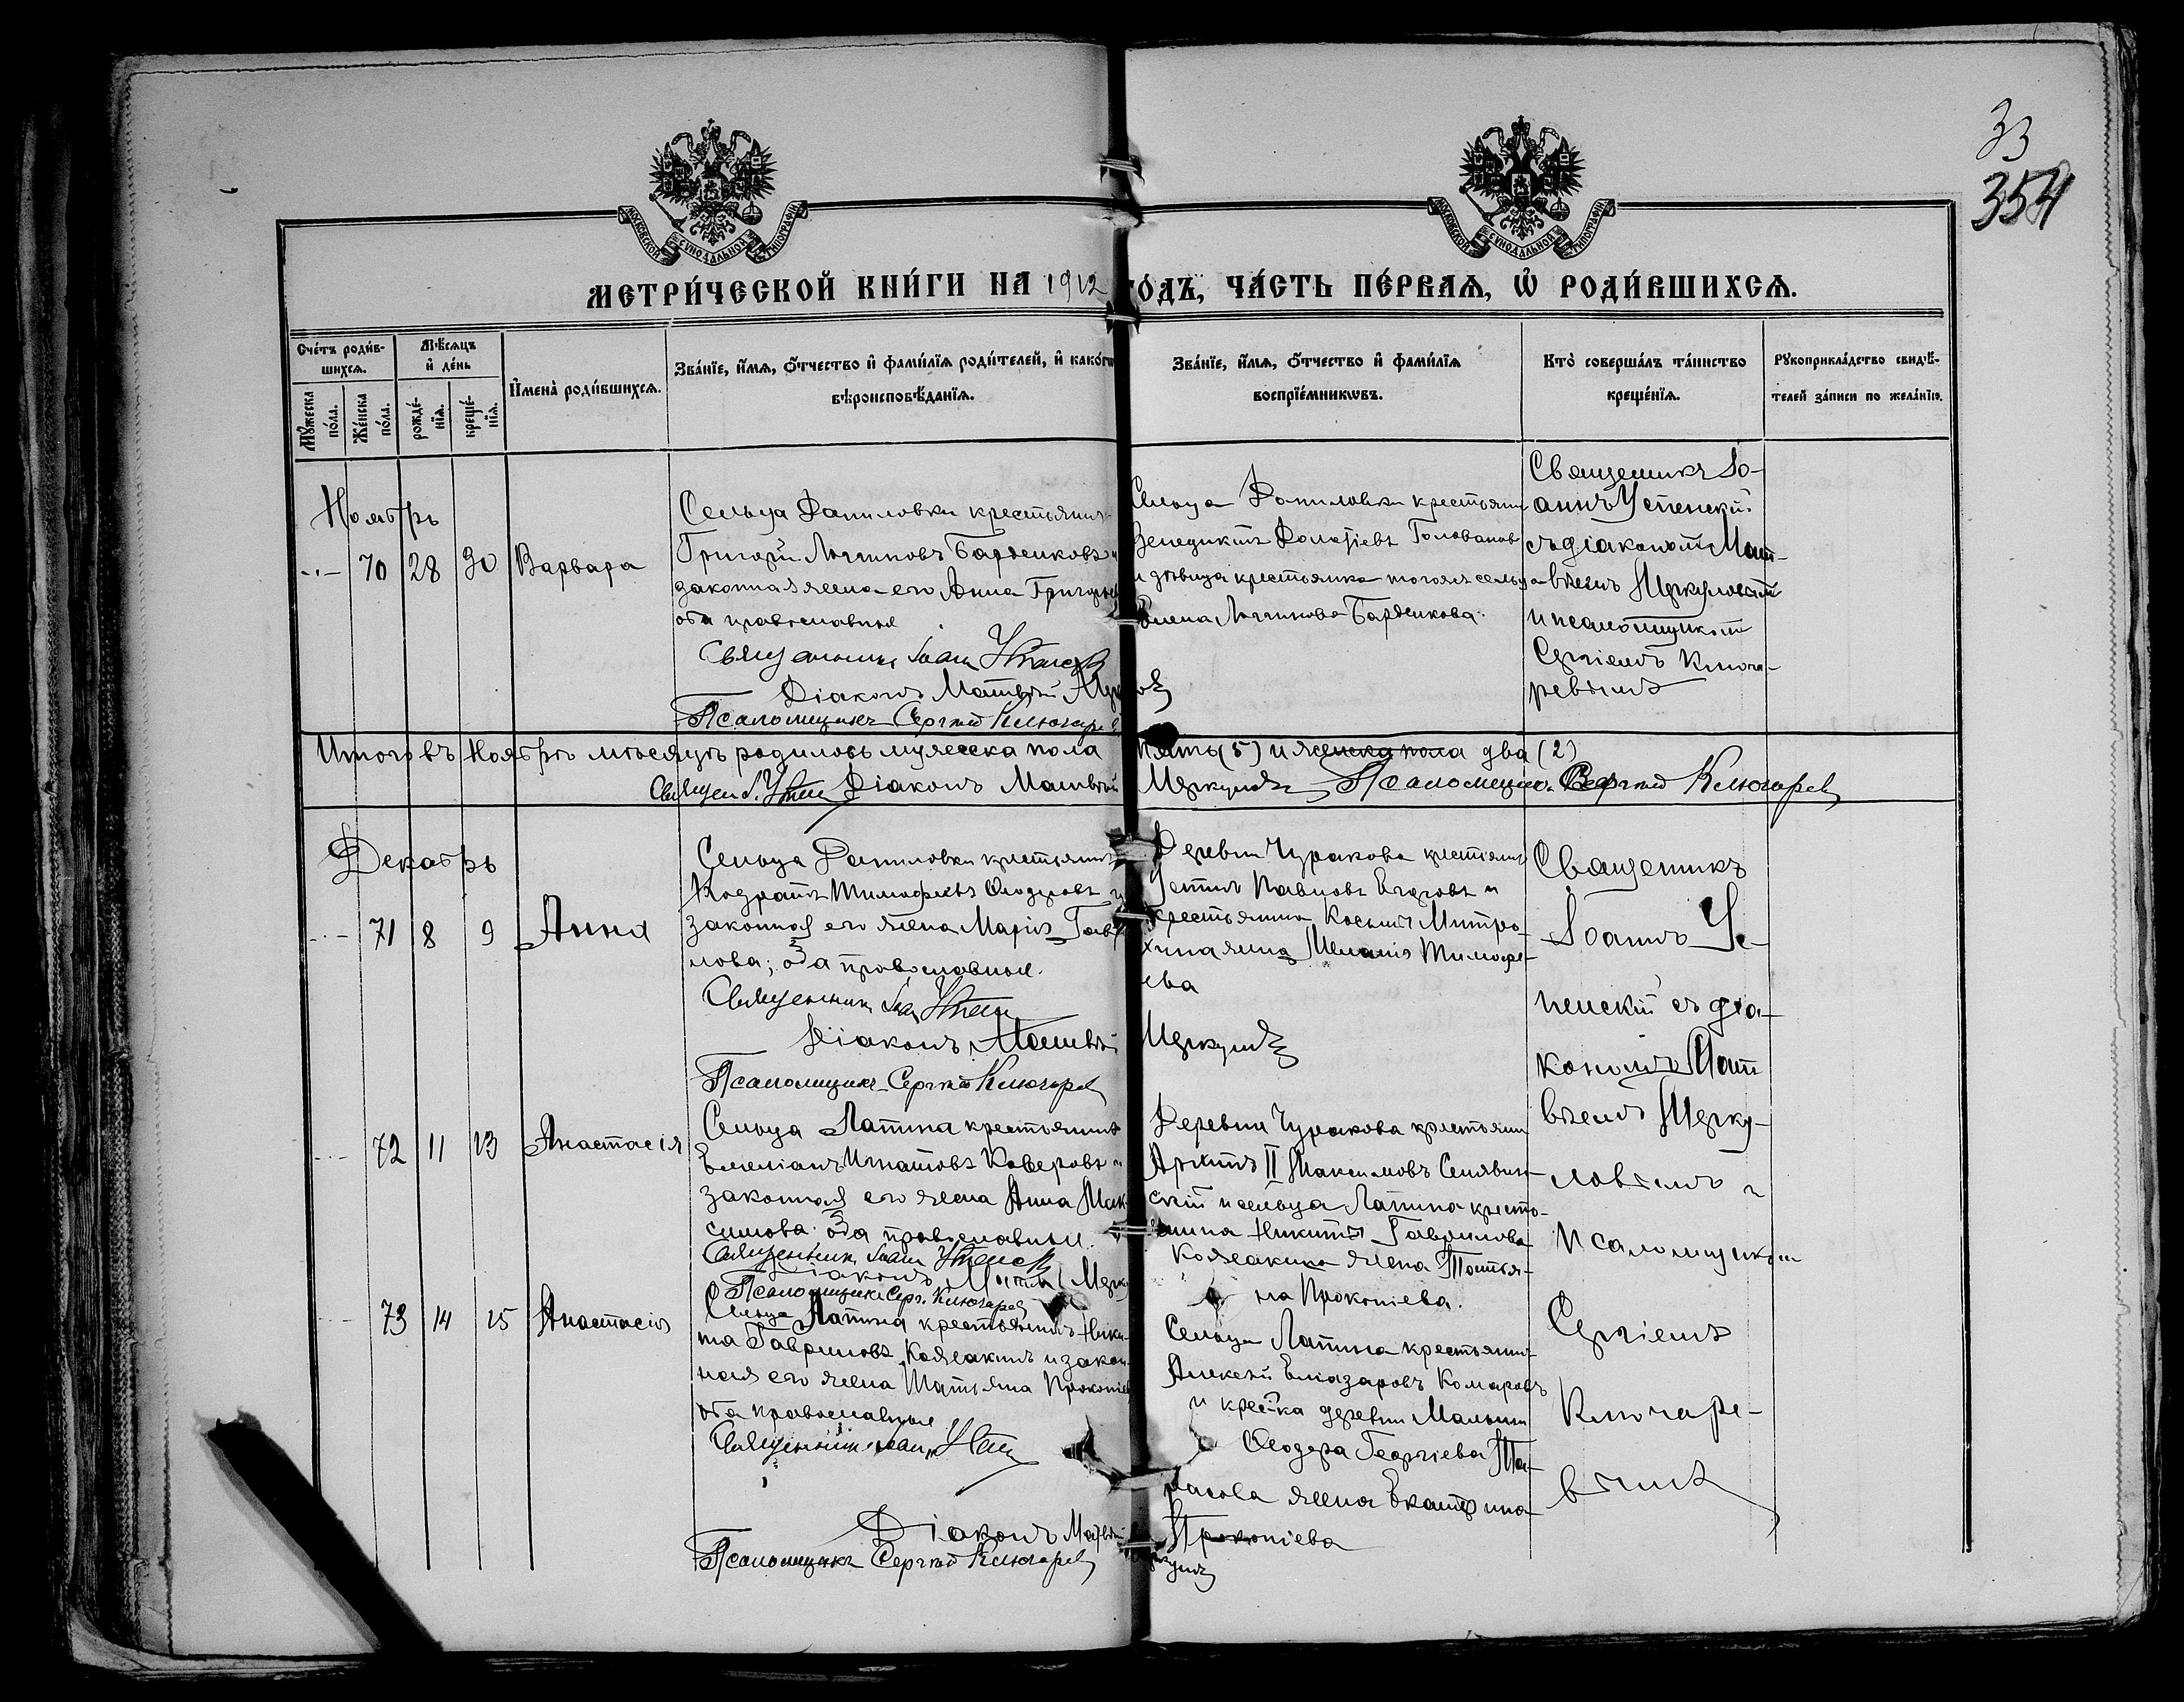 33
354
МОСКОВСКОЙ СѴНОДАЛЬНОЙ ТИПОГРАФІИ
МОСКОВСКОЙ СѴНОДАЛЬНОЙ ТИПОГРАФІИ
МЕТРИ́ЧЕСКОЙ КНИ́ГИ НА 1912 ГО́ДЪ, ЧА́СТЬ ПЕ́РВАѦ, Ѡ҆ РОДИ́ВШИХСѦ.
Сче́тъ роди́в-
шихсѧ.
Мꙋ́жеска по́ла.
Же́нска по́ла.
Мѣ́сѧцъ
и҆ де́нь
рожде́-
нїѧ.
креще́-
нїѧ.
И҆мена̀ роди́вшихсѧ.
Зва́нїе, и҆́мѧ, ѻ҆́тчество и҆ фами́лїѧ роди́телей, и҆ како́гѡ
вѣроисповѣ́данїѧ.
Зва́нїе, и҆́мѧ, ѻ҆́тчество и҆ фами́лїѧ
воспрїе́мникѡвъ.
Кто̀ соверша́лъ та́инство
креще́нїѧ.
Рꙋкоприкла́дство свидѣ́-
телей за́писи по жела́нїю.
Ноябрь
70 28 30 Варвара
Сельца Даниловки крестьянинъ
Григорій Логиновъ Барденковъ и
законная жена его Анна Григорьев
оба православные
Священникъ Іоаннъ Успенскій
Діаконъ Матвѣй Меркуловъ
Псаломщикъ Сергѣй Ключаревъ
Сельца Даниловки крестьянин
Венедиктъ Голованов
и дѣвица крестьянка тогоже сельца
Елена Логинова Барденкова.
Священникъ Іо-
аннъ Успенскій
съ діакономъ Мат-
вѣемъ Меркуловымъ
и псаломщикомъ
Сергіемъ Ключа-
ревымъ
Итого въ Ноябрѣ мѣсяцѣ родилось мужеска пола пять (5) и женска пола два (2)
Священ. І. Успен Діаконъ Матвѣй Меркуловъ Псаломщикъ Сергѣй Ключаревъ
Декабрь
71 8 9 Анна
Сельца Даниловки крестьянинъ
Кодратъ Тимофеевъ и
законная его жена Марія Гав
лова; оба православные.
Священникъ Іоан Успен
Діаконъ Матвѣй Меркуловъ
Псаломщикъ Сергѣй Ключаревъ
Деревни Чуракова крестьянин
Устинъ Павловъ Егоровъ и
крестьянина Косьмы Митро-
хина жена Меланія Тимофе-
ева
Священникъ
Іоаннъ Ус-
пенскій съ діа-
кономъ Мат
вѣемъ Мерку-
ловымъ и
Псаломщиком
Сергіемъ
Ключаре-
вымъ
72 11 13 Анастасія
Сельца Лапина крестьянинъ
Емеліанъ Игнатовъ Каверовъ и
законная его жена Анна Мак
симова оба православные.
Священникъ Іоаннъ Успенскій
Діаконъ Матвѣй Мерку
Псаломщикъ Серг. Ключаревъ
Деревни Чуракова крестьянин
Архипъ II Максимовъ Синявин-
скій и сельца Лапина кресть-
янина Никиты Гаврилова
Кожакина жена Татья-
на Прокопіева.
73 14 15 Анастасія
Сельца Лапина крестьянинъ Ники-
та Гавриловъ Кожакинъ и закон-
ная его жена Татьяна Прокопіев
оба православные
Священникъ Іоан Успен
Діаконъ Матвѣй Меркуловъ
Псаломщикъ Сергѣй Ключаревъ
Сельца Лапина крестьянинъ
Алексѣй Еліазаровъ Комаровъ
и крес-ка деревни Малыни
Ѳеодора Георгіева Та-
расова жена Екатерина
Прокопіева